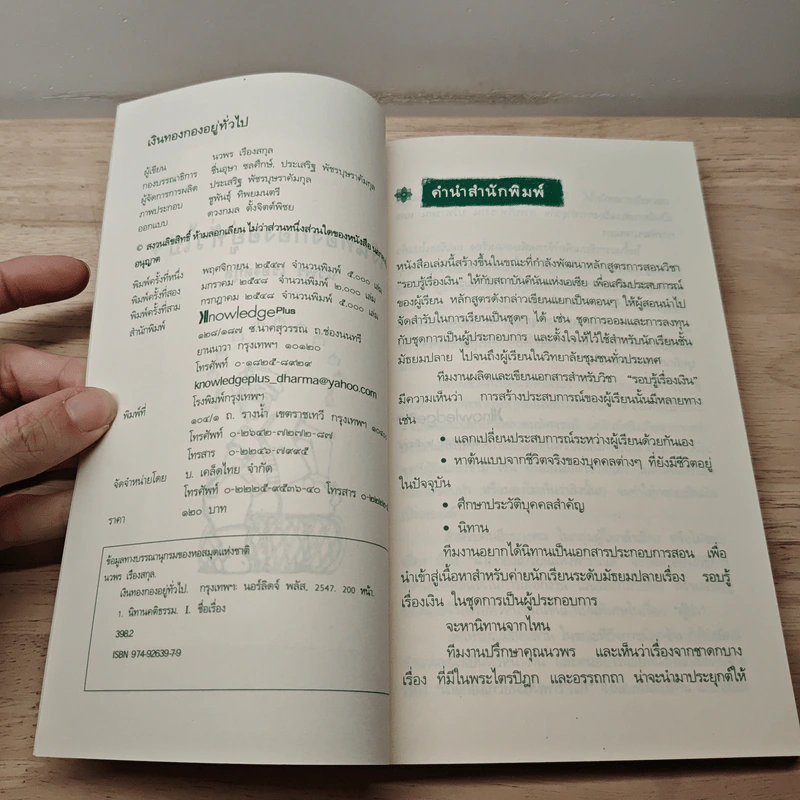 เงินทองกองอยู่ทั่วไป
ผู้เขียน นวพร เรืองสกุล
กองบรรณาธิการ ชื่นอุษา ชลศึกษ์, ประเสริฐ พัชรบุษราคัมกุล
ผู้จัดการการผลิต ประเสริฐ พัชรบุษราคัมกุล
ภาพประกอบ ชูพันธุ์ ทิพยมนตรี
ออกแบบ ดวงกมล ตั้งจิตต์พิชย
© สงวนลิขสิทธิ์ ห้ามลอกเลียน ไม่ว่าส่วนหนึ่งส่วนใดของหนังสือ
อนุญาต
พิมพ์ครั้งที่หนึ่ง พฤศจิกายน ๒๕๔๗ จำนวนพิมพ์ ๕,๐๐๐ เล่ม
พิมพ์ครั้งที่สอง มกราคม ๒๕๔๘ จำนวนพิมพ์ ๒,๐๐๐ เล่ม
พิมพ์ครั้งที่สาม กรกฎาคม ๒๕๔๘ จำนวนพิมพ์ ๕,๐๐๐ เล่ม
สำนักพิมพ์ KnowledgePlus
๑๒๘/๑๘๗ ซ.นาคสุวรรณ ถ.ช่องนนทรี
ยานนาวา กรุงเทพฯ ๑๐๑๒๐
โทรศัพท์ ๐-๑๘๒๕-๘๙๒๙
knowledgeplus_dharma@yahoo.com
พิมพ์ที่ โรงพิมพ์กรุงเทพฯ
๑๐๔/๑ ถ. รางน้ำ เขตราชเทวี กรุงเทพฯ ๑๐๔๐๐
โทรศัพท์ ๐-๒๖๔๒-๗๒๗๒-๘๗
โทรสาร ๐-๒๒๔๖-๗๙๙๕
จัดจำหน่ายโดย บ. เคล็ดไทย จำกัด
โทรศัพท์ ๐-๒๒๒๕-๙๕๓๖-๔๐ โทรสาร
ราคา ๑๒๐ บาท
ข้อมูลทางบรรณานุกรมของหอสมุดแห่งชาติ
นวพร เรืองสกุล.
เงินทองกองอยู่ทั่วไป. กรุงเทพฯ: นอร์ลิดจ์ พลัส, 2547. 200 หน้า.
1. นิทานคติธรรม. I. ชื่อเรื่อง
398.2
ISBN 974-92639-7-9
คำนำสำนักพิมพ์
หนังสือเล่มนี้สร้างขึ้นในขณะที่กำลังพัฒนาหลักสูตรการสอนวิชา
“รอบรู้เรื่องเงิน” ให้กับสถาบันคีนันแห่งเอเซีย เพื่อเสริมประสบการณ์
ของผู้เรียน หลักสูตรดังกล่าวเขียนแยกเป็นตอนๆ ให้ผู้สอนนำไป
จัดสำรับในการเรียนเป็นชุดๆ ได้ เช่น ชุดการออมและการลงทุน
กับชุดการเป็นผู้ประกอบการ และตั้งใจให้ไว้ใช้สำหรับนักเรียนชั้น
มัธยมปลาย ไปจนถึงผู้เรียนในวิทยาลัยชุมชนทั่วประเทศ
ทีมงานผลิตและเขียนเอกสารสำหรับวิชา “รอบรู้เรื่องเงิน”
มีความเห็นว่า การสร้างประสบการณ์ของผู้เรียนนั้นมีหลายทาง
เช่น
• แลกเปลี่ยนประสบการณ์ระหว่างผู้เรียนด้วยกันเอง
• หาต้นแบบจากชีวิตจริงของบุคคลต่างๆ ที่ยังมีชีวิตอยู่
ในปัจจุบัน
• ศึกษาประวัติบุคคลสำคัญ
• นิทาน
ทีมงานอยากได้นิทานเป็นเอกสารประกอบการสอน เพื่อ
นำเข้าสู่เนื้อหาสำหรับค่ายนักเรียนระดับมัธยมปลายเรื่อง รอบรู้
เรื่องเงิน ในชุดการเป็นผู้ประกอบการ
จะหานิทานจากไหน
ทีมงานปรึกษาคุณนวพร และเห็นว่าเรื่องจากชาดกบาง
เรื่อง ที่มีในพระไตรปิฎก และอรรถกถา น่าจะนำมาประยุกต์ให้